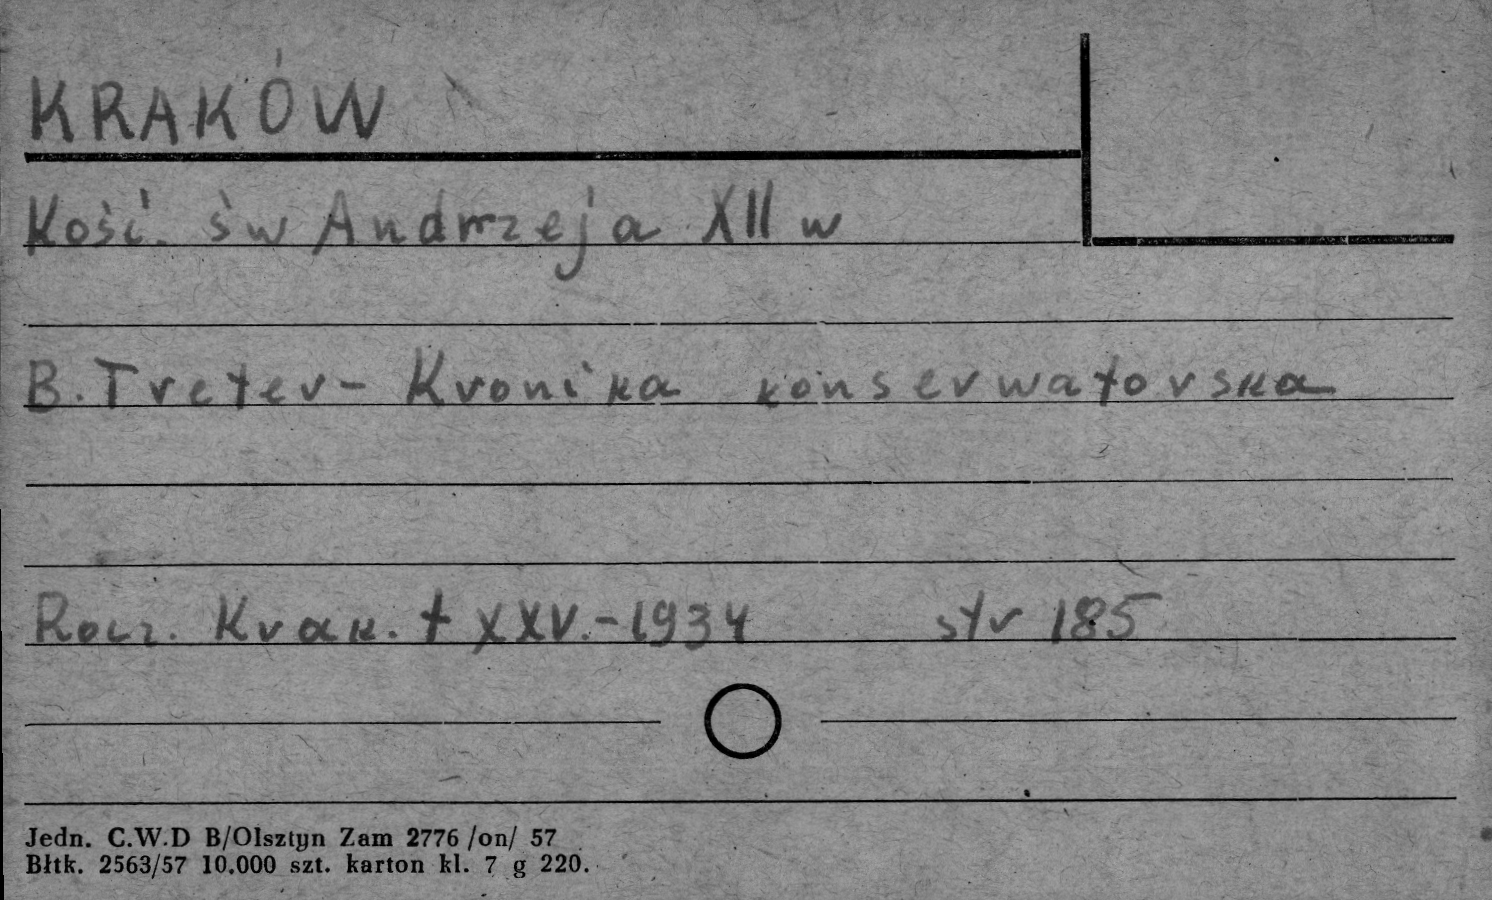 KRAKÓW
Kość. św Andrzeja XII w
B. Treter - Kronika konserwatorska
Rocz. Krak. t XXV. - 1934 str 185
Jedn. C.W.D B/Olsztyn Zam 2776 /on/ 57
Błtk. 2563/57 10.000 szt. karton kl. 7 g 220.